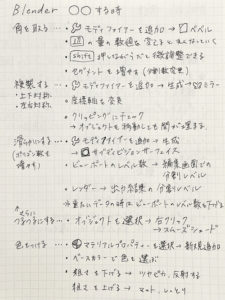 Blender ○○する時
角を取る … • モディファイヤーを追加 → ベベル
• の量の数値を変えると
• shift 押しながらだと微調整できる
• セグメントを増やす(分割数変更)
複製する … • モディファイヤーを追加 → 生成 → ミラー
• 上下対称
• 左右対称
• 座標軸を変更
• クリッピングにチェック
→ オブジェクトを移動しても間が埋まる。
滑らかにする … • モディファイヤーを追加 → 生成
(ポリゴン数を増やす)
→ サブディビジョンサーフェイス
• ビューポートのレベル数 → 編集画面での分割レベル
• レンダー → 出力結果の分割レベル
※重たいデータの時はビューポートのレベル数を下げる
↑さらに
つるつるにする … • オブジェクトを選択 → 右クリック
→ スムーズシェード
色をつける … • マテリアルプロパティーを選択 → 新規追加
• ベースカラーで色を選ぶ
• 粗さを下げる → ツヤピカ、反射する
粗さを上げる → マット、しっとり